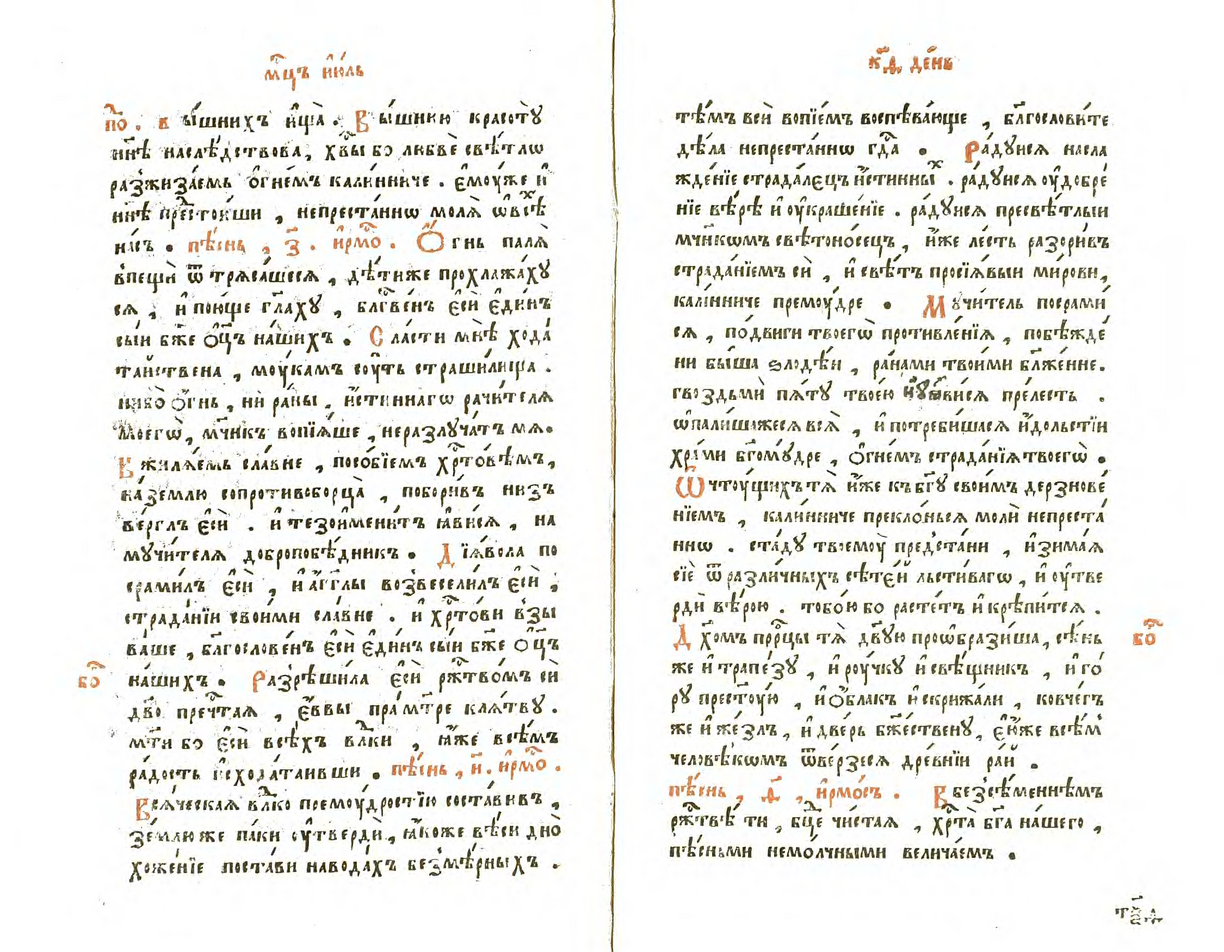 мц҃ъ і҆ю́ль
по̑. в вы́шнихъ ищѧ̀. Вы́шнюю красотꙋ̀
нн҃ѣ наслѣ́дствова, хв҃ы бо любвѐ свѣ́тлѡ
разжиза́емь ѻ҆гне́мъ калинниче. є҆моу́же и҆
нн҃ѣ престоѧши, непреста́ннѡ молѧ̀ ѡ҆ всѣ́х
на́съ. пѣ́снь, з҃. и҆рмо̑. Ѻ҆гнь палѧ̀
впещѝ ѿ трѧса́шесѧ, дѣ́тиже прохлажа́хꙋ
сѧ, и҆ пою́ще гл҃ахꙋ, блг҃ве́нъ є҆сѝ є҆ди́нъ
сыи бж҃е ѻ҆ц҃ъ на́шихъ. Сла́сти мнѣ̀ хода́
та́йствена, моу́камъ соу́ть страши́лища.
нибо̀ ѻ҆́гнь, ни ра́ны, и҆́стиннагѡ рачи́телѧ
моегѡ̀, мч҃нкъ вопїѧ́ше, неразлꙋча́тъ мѧ.
Вжилѧ́емь сла́вне, посо́бїемъ хрⷭ҇то́вѣмъ,
на́землю сопротивобо́рца, побори́въ низъ
ве́рглъ є҆сѝ. и҆ тезоимени́тъ ꙗ҆ви́сѧ, на
мꙋчи́телѧ добропобѣ́дникъ. Дїѧ́вола по
срами́лъ є҆сѝ, и҆ а҆́гг҃лы возвесели́лъ є҆сѝ,
страда́нїи свои́ми сла́вне. и҆ хрⷭ҇то́ви взы
ва́ше, бл҃гослове́нъ є҆сѝ є҆ди́нъ сыи бж҃е ѻ҆ц҃ъ
на́шихъ. Разрѣши́ла є҆сѝ ржⷭ҇тво́мъ си
дв҃о преч҇таѧ, є҆́ввы прам҃тре клѧ́твꙋ.
мт҃и бо є҆сѝ всѣ́хъ влⷣки, ꙗ҆́же всѣ́мъ
ра́дость и҆схода́таивши. пѣ́снь, и҃. и҆рмо̑.
бо̑
Всѧ́ческаѧ влⷣко премоу́дростїю соста́вивъ,
зе́млюже па́ки оу҆твердѝ, ꙗ҆́коже вѣ́си дно̀
хожде́нїе поста́ви на вода́хъ безмѣ́рныхъ.
к҃д де́нь
тѣ́мъ всѝ вопїе́мъ воспѣва́юще, бл҃гослови́те
дѣла̀ непреста́ннѡ гдⷭ҇а. Ра́дꙋисѧ насла
жде́нїе страда́лєцъ и҆́стинныⷯ. ра́дꙋисѧ оу҆добре́
нїе вѣ́рѣ и҆ оу҆краше́нїе. ра́дꙋисѧ пресвѣ́тлыи
мч҃нкѡмъ свѣтоно́сецъ, и҆́же ле́сть разори́въ
страда́нїемъ сѝ, и҆ свѣ́тъ просїѧ́выи ми́рови,
кали́нниче премоу́дре. Мꙋчи́тель посрами́
сѧ, по́двиги твоегѡ̀ противле́нїѧ, побѣжде́
ни бы́ша ѕлодѣ́и, ра́нами твои́ми бл҃же́нне.
гвоздьмѝ пѧтꙋ̀ твоею̀ ... пре́лесть.
ѡ҆пали́шажесѧ всѧ̀, и҆ потреби́шасѧ и҆́дольстїи
хра́ми бг҃омꙋ́дре, ѻ҆гне́мъ страда́нїѧ твоегѡ̀.
Ѿ чтоу́щихъ тѧ̀ и҆́же къ бг҃ꙋ свои́мъ дерзнове́
нїемъ, кали́нниче преклоньсѧ молѝ непреста́
ннѡ. ста́дꙋ твоемоу̀ предста́ни, и҆зима́ѧ
сїѐ ѿ разли́чныхъ сѣте́й льсти́вагѡ, и҆ оу҆тве
рдѝ вѣ́рою. тобо́ю бо расте́тъ и҆ крѣпи́тсѧ.
Дх҃омъ прⷪ҇рцы тѧ̀ дв҃ꙋю проѡбрази́ша, сѣ́нь
бо̑
же и҆ трапе́зꙋ, и҆ роу́чкꙋ и҆ свѣ́щникъ, и҆ го́
рꙋ престоу́ю, и҆ ѻ҆́блакъ и҆ скрижа́ли, ковче́гъ
же и҆ же́злъ, и҆ две́рь бж҃е́ственꙋ, є҆́юже всѣ́м
человѣ́кѡмъ ѿве́рзесѧ дре́внїи ра́й.
пѣ́снь, ѳ҃, и҆рмо́съ. В безсѣ́меннѣмъ
ржⷭ҇твѣ̀ ти, бц҃е чи́стаѧ, хрⷭ҇та̀ бг҃а на́шего,
пѣ́сньми немо́лчными велича́емъ.